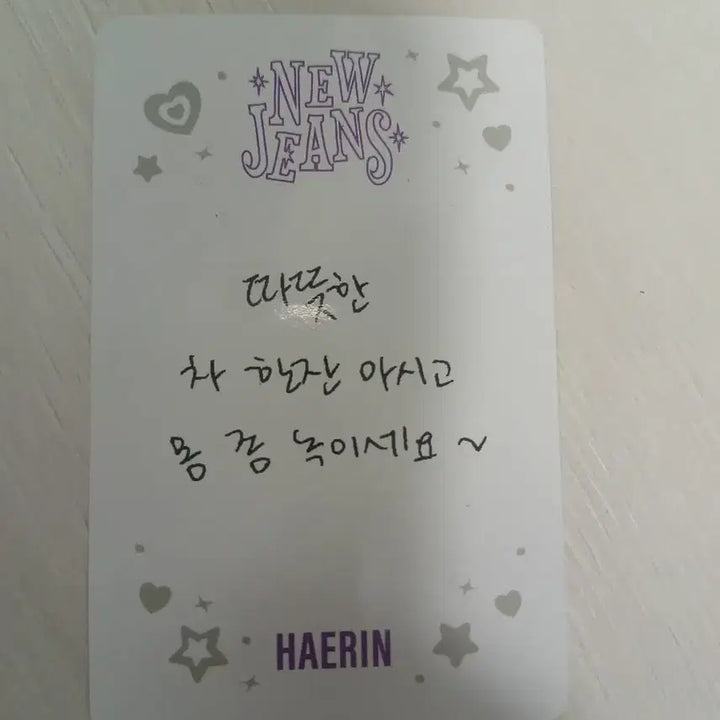 NEW
JEANS
따뜻한
차 한잔 마시고
몸 좀 녹이세요 ~
HAERIN